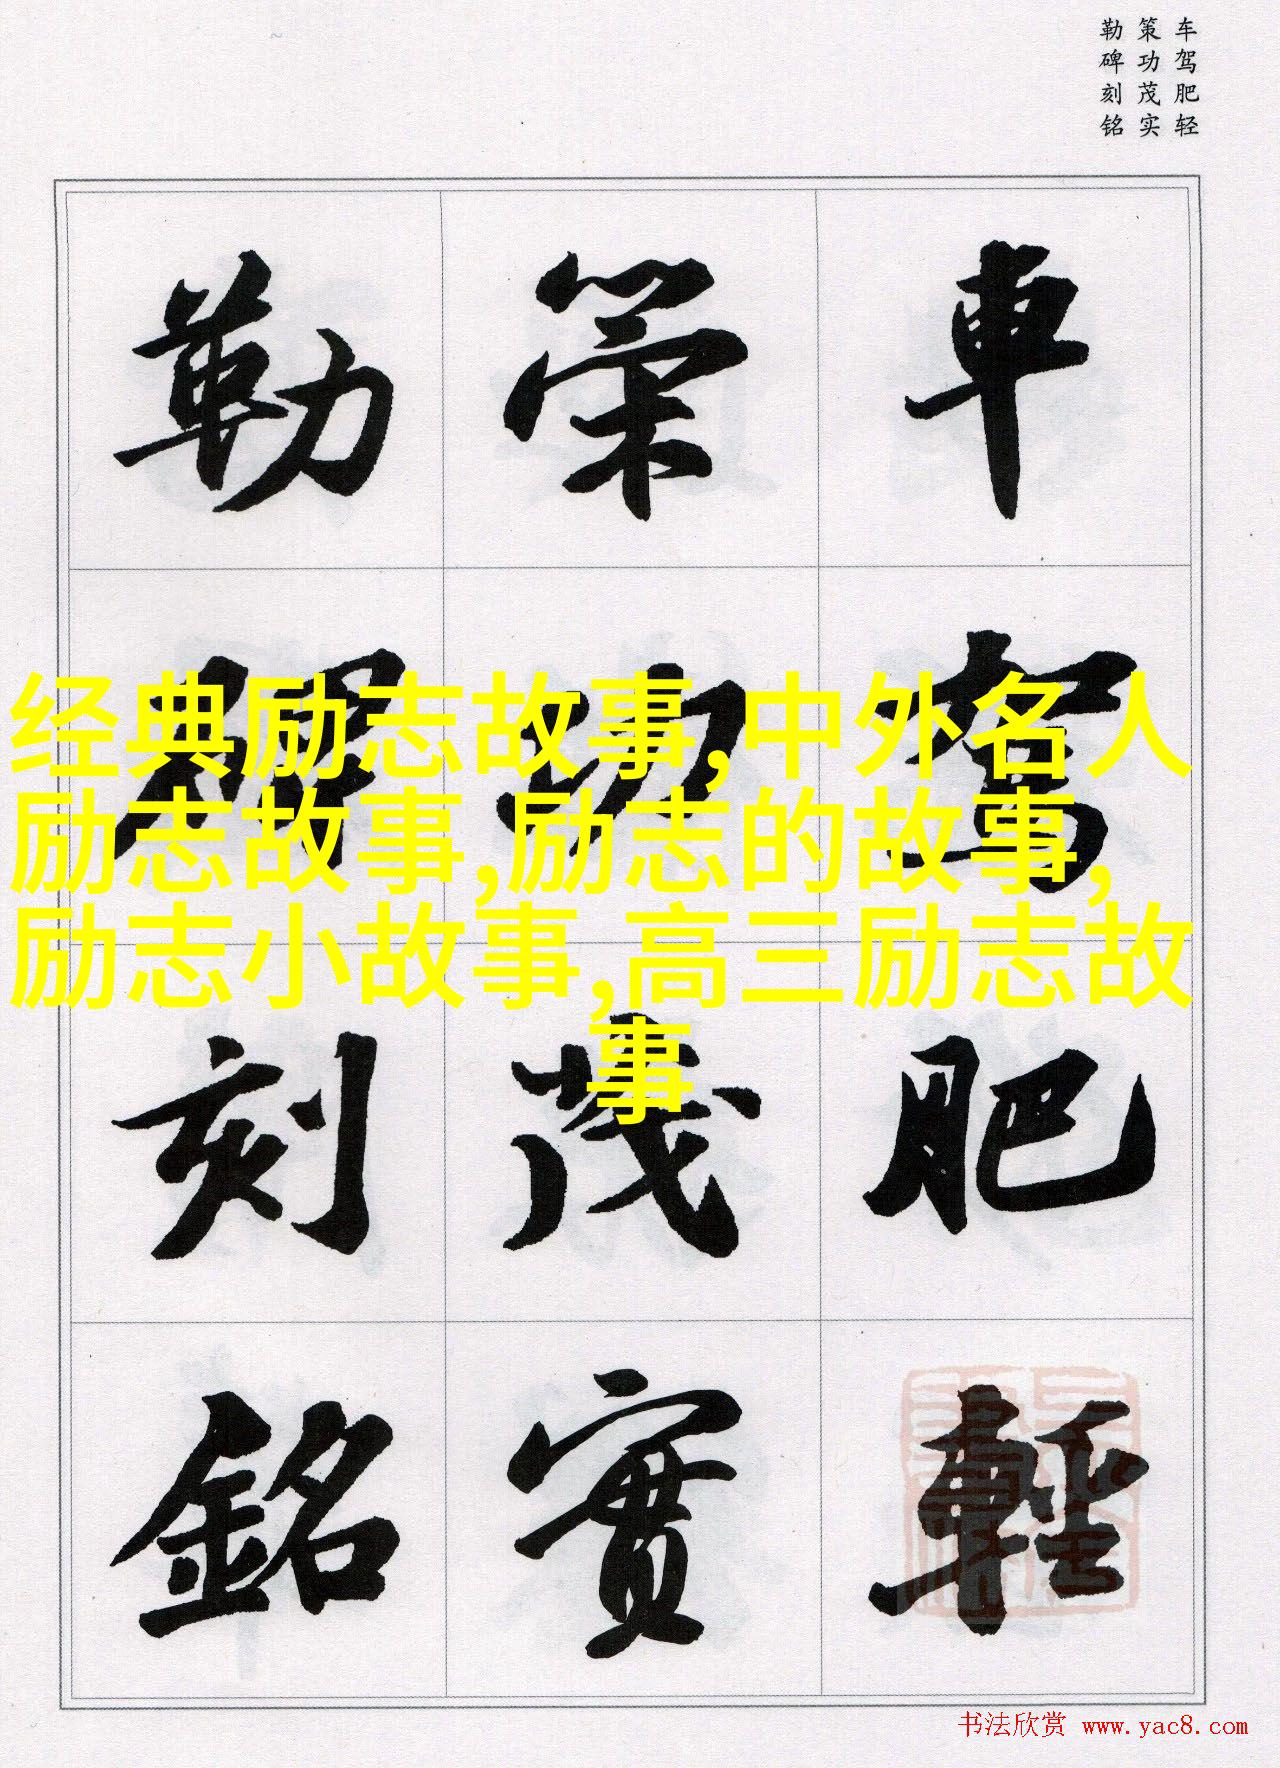 车驾肥轻
策功茂实
勒碑刻铭
車駕肥輕
策功茂實
勒碑刻銘
经典励志故事,中外名人
励志故事,励志的故事,
励志小故事,高三励志故
事
书法欣赏 www.yac8.com